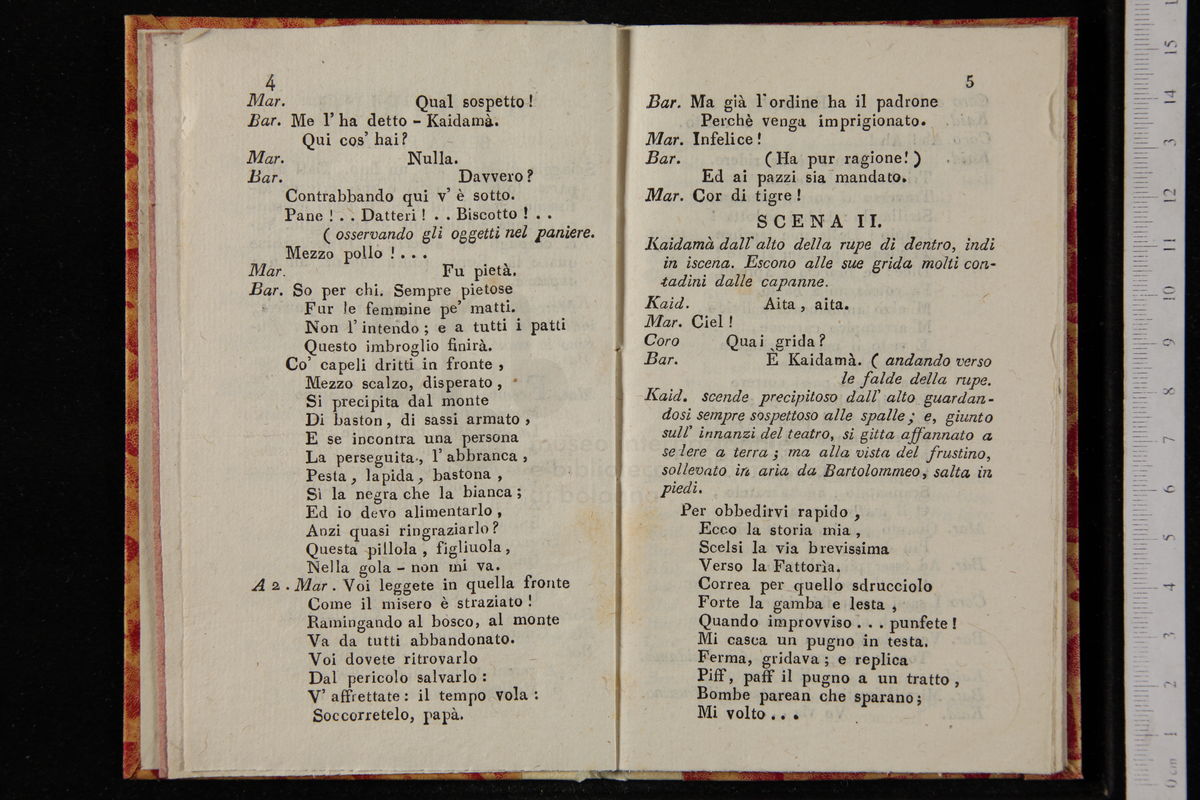 4
Mar. Qual sospetto!
Bar. Me l'ha detto - Kaidamà.
Qui cos' hai?
Mar. Nulla.
Bar. Davvero?
Contrabbando qui v' è sotto.
Pane ! . . Datteri ! . . Biscotto ! . .
( osservando gli oggetti nel paniere.
Mezzo pollo ! . . .
Mar. Fu pietà.
Bar. So per chi. Sempre pietose
Fur le femmine pe' matti.
Non l'intendo ; e a tutti i patti
Questo imbroglio finirà.
Co' capeli dritti in fronte ,
Mezzo scalzo, disperato ,
Si precipita dal monte
Di baston , di sassi armato ,
E se incontra una persona
La perseguita , l'abbranca ,
Pesta , lapida , bastona ,
Sì la negra che la bianca ;
Ed io devo alimentarlo ,
Anzi quasi ringraziarlo ?
Questa pillola , figliuola ,
Nella gola - non mi va.
A 2 . Mar . Voi leggete in quella fronte
Come il misero è straziato !
Ramingando al bosco, al monte
Va da tutti abbandonato.
Voi dovete ritrovarlo
Dal pericolo salvarlo :
V' affrettate : il tempo vola :
Soccorretelo, papà.
5
Bar. Ma già l'ordine ha il padrone
Perchè venga imprigionato.
Mar. Infelice !
Bar. ( Ha pur ragione! )
Ed ai pazzi sia mandato.
Mar. Cor di tigre !
SCENA II.
Kaidamà dall'alto della rupe di dentro, indi
in iscena. Escono alle sue grida molti con-
tadini dalle capanne.
Kaid. Aita , aita.
Mar. Ciel !
Coro Quai grida ?
Bar. È Kaidamà. ( andando verso
le falde della rupe.
Kaid. scende precipitoso dall' alto guardan-
dosi sempre sospettoso alle spalle ; e, giunto
sull' innanzi del teatro, si gitta affannato a
sedere a terra ; ma alla vista del frustino,
sollevato in aria da Bartolommeo, salta in
piedi.
Per obbedirvi rapido ,
Ecco la storia mia ,
Scelsi la via brevissima
Verso la Fattorìa.
Correa per quello sdrucciolo
Forte la gamba e lesta ,
Quando improvviso . . . punfete !
Mi casca un pugno in testa.
Ferma, gridava ; e replica
Piff, paff il pugno a un tratto ,
Bombe parean che sparano ;
Mi volto . . .